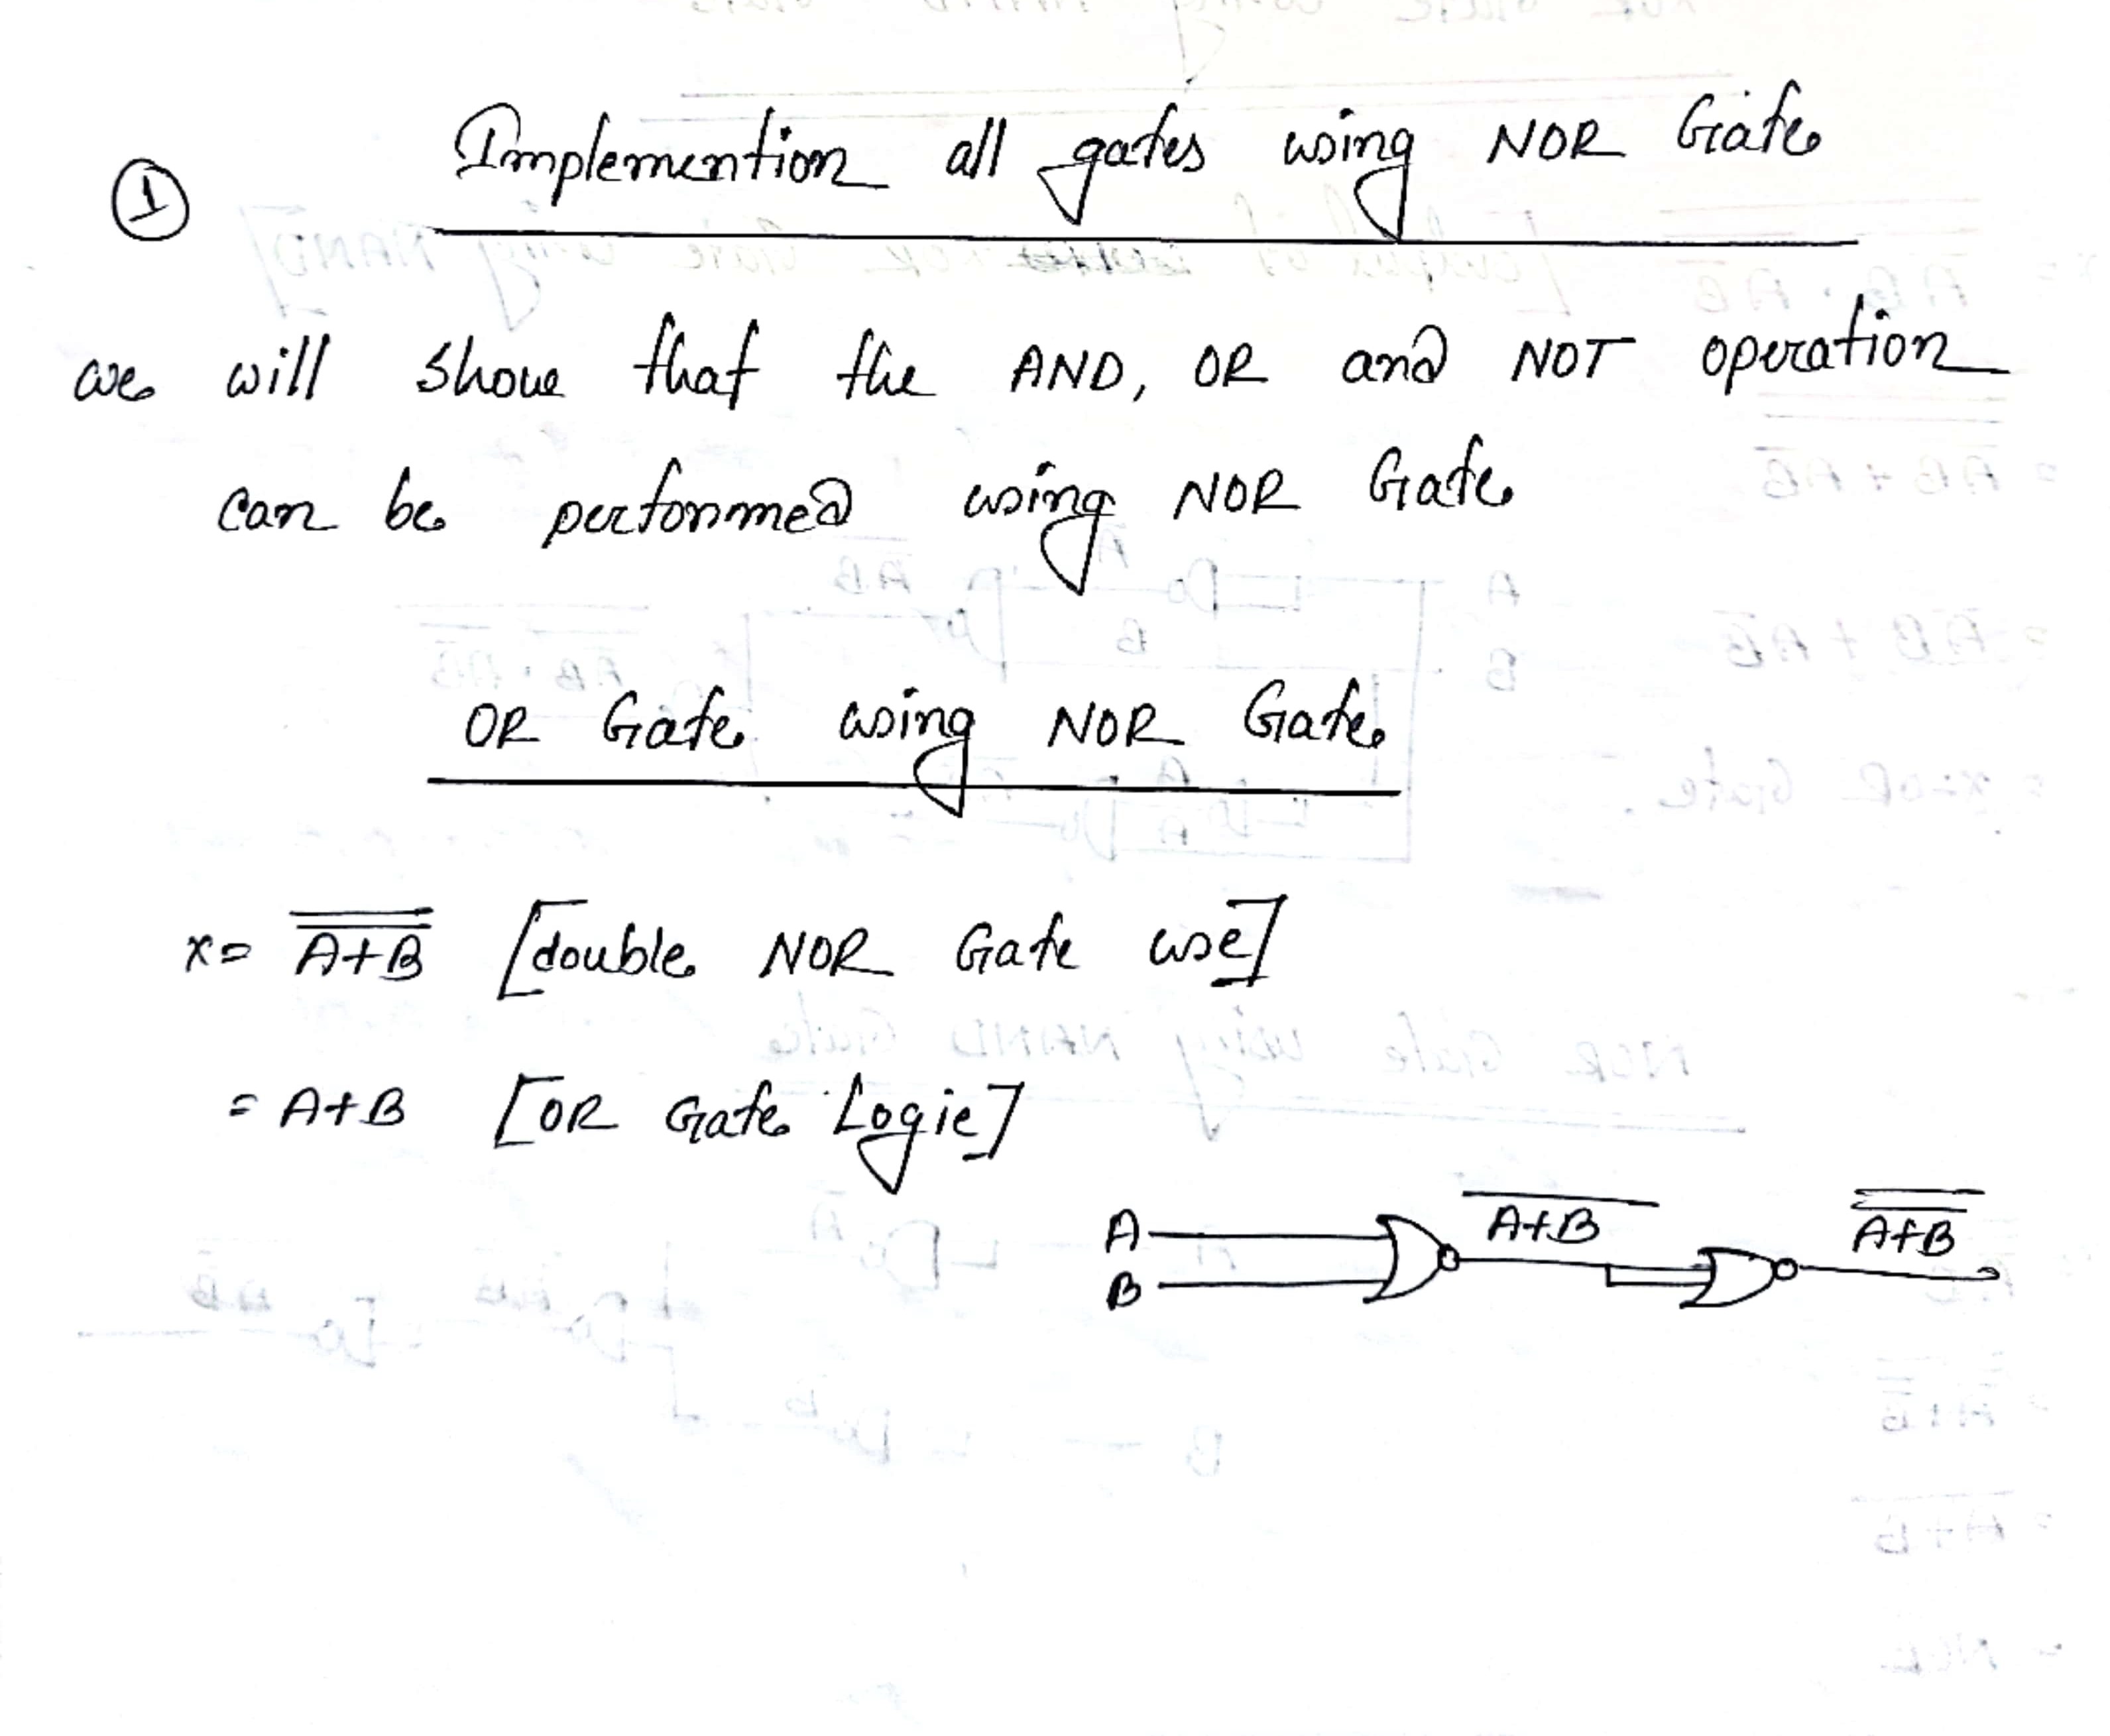 ① Implemention all gates using NOR Gate
we will show that the AND, OR and NOT operation
can be performed using NOR Gate
OR Gate using NOR Gate
x= A̿+̿B̿ [double NOR Gate use]
= A+B [OR Gate Logic]
A A̅+̅B̅ A̿+̿B̿
B